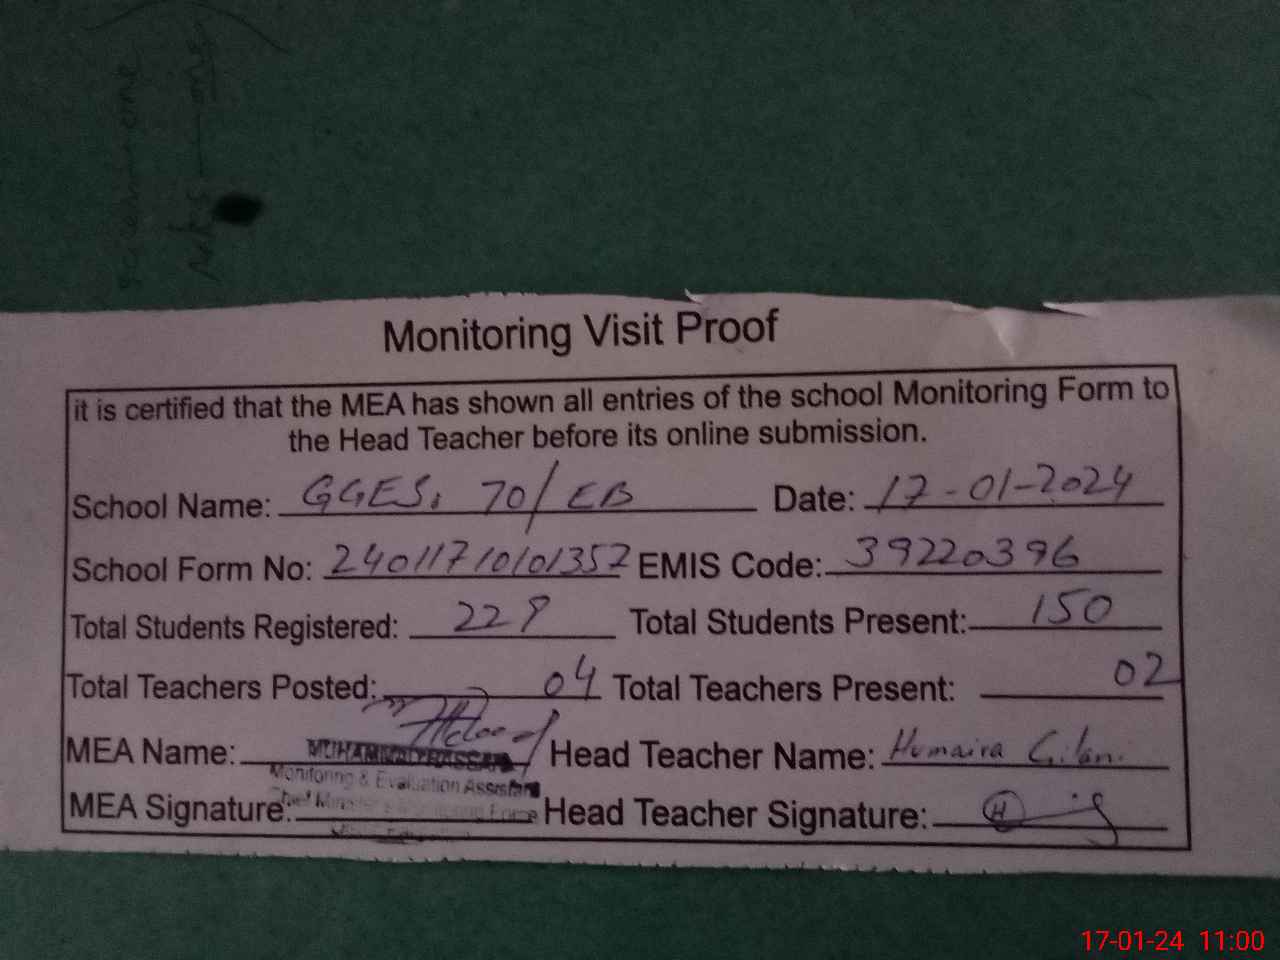 Monitoring Visit Proof
it is certified that the MEA has shown all entries of the school Monitoring Form to
the Head Teacher before its online submission.
School Name: GGES, 70/EB Date: 17-01-2024
School Form No: 24011710101357 EMIS Code: 39220396
Total Students Registered: 229 Total Students Present: 150
Total Teachers Posted: 04 Total Teachers Present: 02
MEA Name: MUHAMMAD Head Teacher Name: Humaira Gilani
Monitoring & Evaluation Assistant
MEA Signature: Force Head Teacher Signature:
17-01-24 11:00